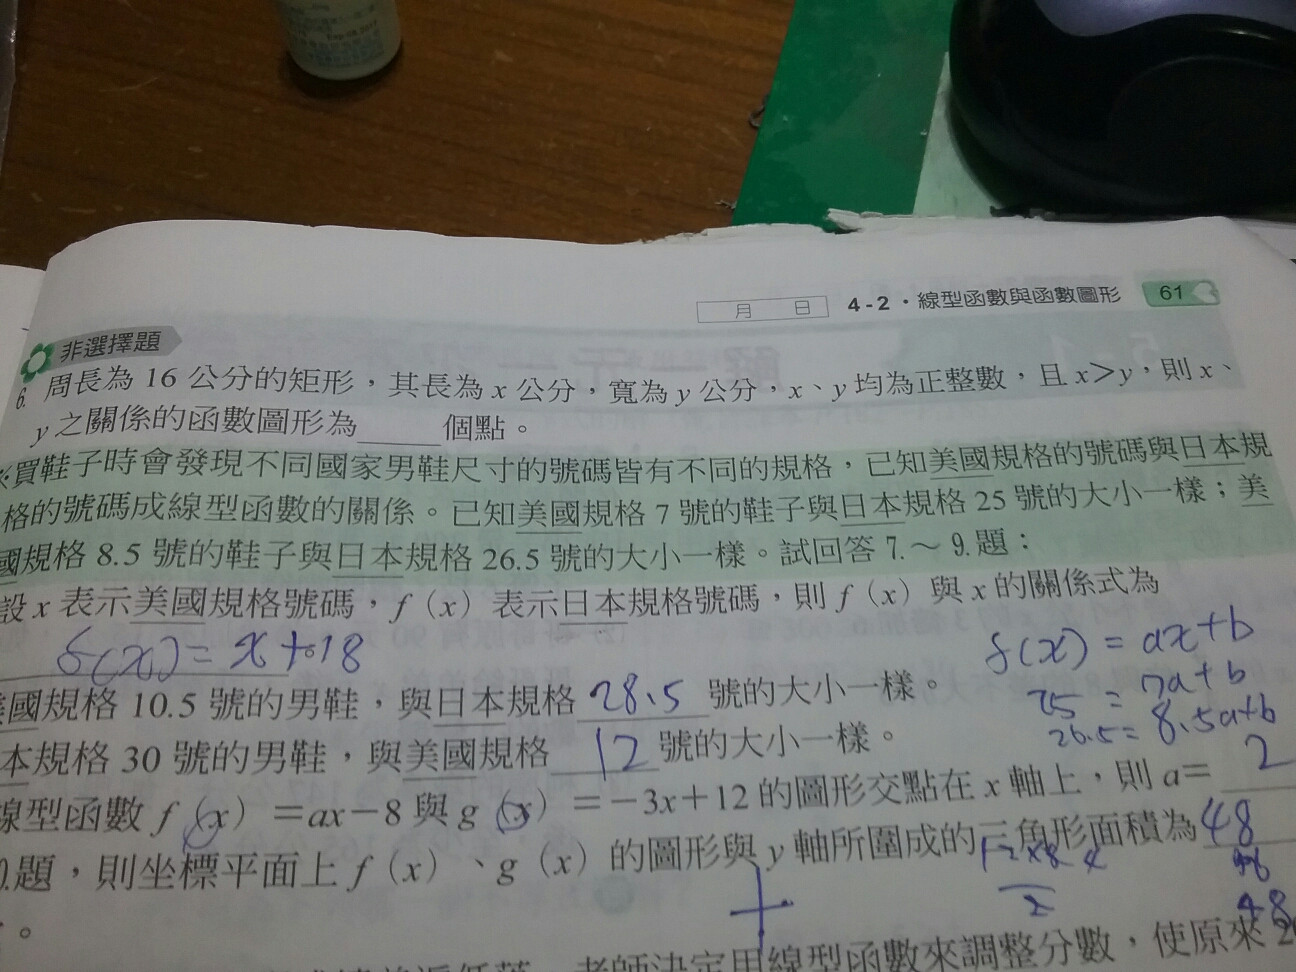 月 日 4-2・線型函數與函數圖形 61
非選擇題
6. 周長為 16 公分的矩形，其長為 x 公分，寬為 y 公分，x、y 均為正整數，且 x>y，則 x、
y 之關係的函數圖形為____個點。
※買鞋子時會發現不同國家男鞋尺寸的號碼皆有不同的規格，已知美國規格的號碼與日本規
格的號碼成線型函數的關係。已知美國規格 7 號的鞋子與日本規格 25 號的大小一樣；美
國規格 8.5 號的鞋子與日本規格 26.5 號的大小一樣。試回答 7.～ 9.題：
設 x 表示美國規格號碼，f（x）表示日本規格號碼，則 f（x）與 x 的關係式為
f(x) = x + 18
f(x) = ax+b
25 = 7a+b
26.5 = 8.5a+b
美國規格 10.5 號的男鞋，與日本規格 28.5 號的大小一樣。
本規格 30 號的男鞋，與美國規格 12 號的大小一樣。
線型函數 f（x）=ax−8 與 g（x）=−3x+12 的圖形交點在 x 軸上，則 a= 2
題，則坐標平面上 f（x）、g（x）的圖形與 y 軸所圍成的三角形面積為 48
。
2
48
老師決定用線型函數來調整分數，使原來